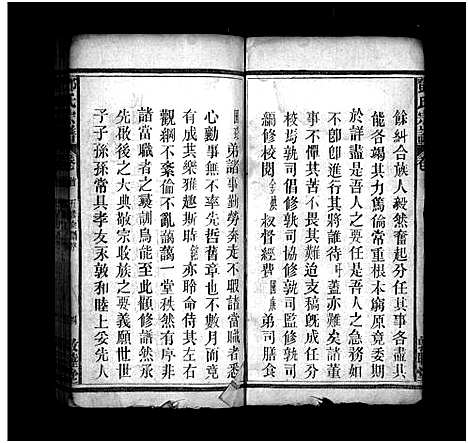 餘糾合族人毅然奮起分任其事各盡其
能各竭其力篤倫常重根本窮原竟委期
於詳盡是吾人之要任是吾人之急務如
不即即進行其將誰待 蓋亦難矣諸董
事不憚其苦不畏其難迨支稿既成任分
校 敦司倡修敦司協修敦司監修敦司
編修校閱 叔督經費 弟司
弟諸事勤勞奔走不暇諸當職者悉
心勤事無不率先哲舊章也不數月而竟
獲厥成余雖趨斯時 倖得侍其左右
觀綱不紊倫不亂譪譪一堂秩然有序非
諸當職者之嬺訓烏能至此顧修譜然承
先啟後之大典敬宗收族之要義願世世
子子孫孫常具孝友永敦和睦上妥先人